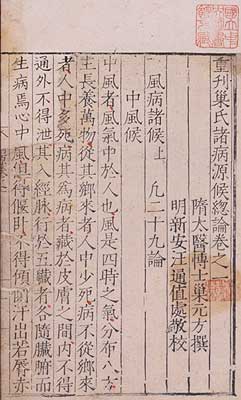 重刊巢氏諸病源候總論卷之一
隋太醫博士巢元方撰
明新安汪通值處敬校
風病諸候上 凡二十九論
中風候
中風者風氣中於人也風是四時之氣分布八方
主長養萬物從其鄉來者人中少死病不從鄉來
者人中多死病其為病者藏於皮膚之間內不得
通外不得泄其入經脉行於五臟者各隨臟腑而
生病焉心中風但得偃卧不得傾側汗出若脣赤